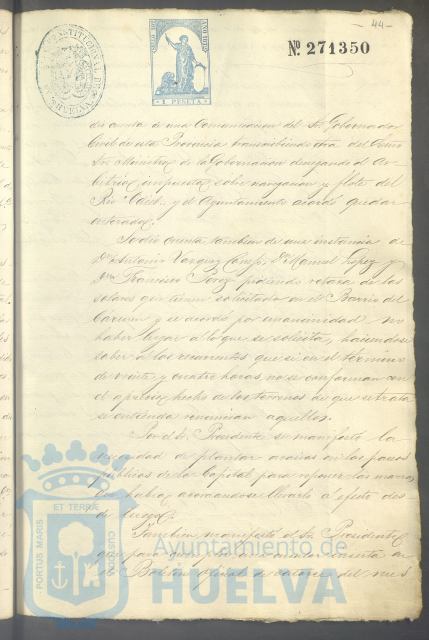 44
Nº 271350
1 PESETA
dió cuenta de una Comunicacion del Sr. Gobernador
Civil de esta Provincia transcribiendo otra del Exmo
Sr. Ministro de la Gobernacion denegando el Ar-
bitrio impuesto sobre manganeso y flete del
Rio Odiel y el Ayuntamiento acordó quedar
enterado.
Se dió cuenta tambien de una instancia de
Dn. Antonio Vazquez Dn. Manuel Lopez y
Dn. Francisco Perez pidiendo rebaja de los
solares que tienen solicitado en el Barrio del
Carmen y se acordó por unanimidad no
haber lugar a lo que se solicita, haciendose
saber a los recurrentes que si en el termino
de veinte y cuatro horas no se conforman con
el aprecio hecho de los terrenos de que se trata
se entienda renuncian aquellos.
Por el Sr. Presidente se manifestó la
necesidad de plantar acacias en los paseos
publicos de la Capital para reponer las
que habia, acordandose llevarlo a efecto des-
de luego.
Tambien manifestó el Sr. Presidente
que para
el Boletin oficial de catorce del mes
PORTUS MARIS ET TERRÆ CUSTODIA
Ayuntamiento de
HUELVA